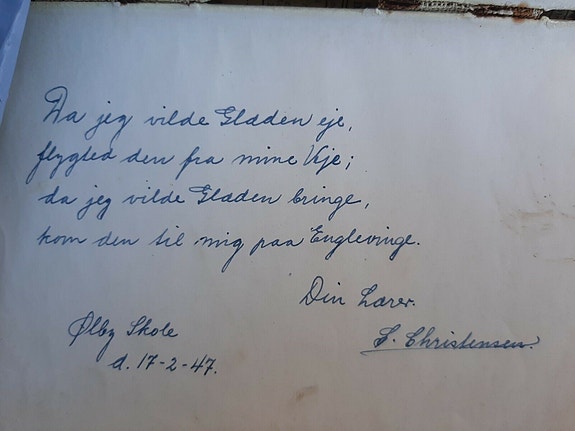 Da jeg vilde Glæden eje,
flygted den fra mine Veje;
da jeg vilde Glæden bringe,
kom den til mig paa Englevinge.
Din Lærer.
S. Christensen.
Ølby Skole
d. 17-2-47.